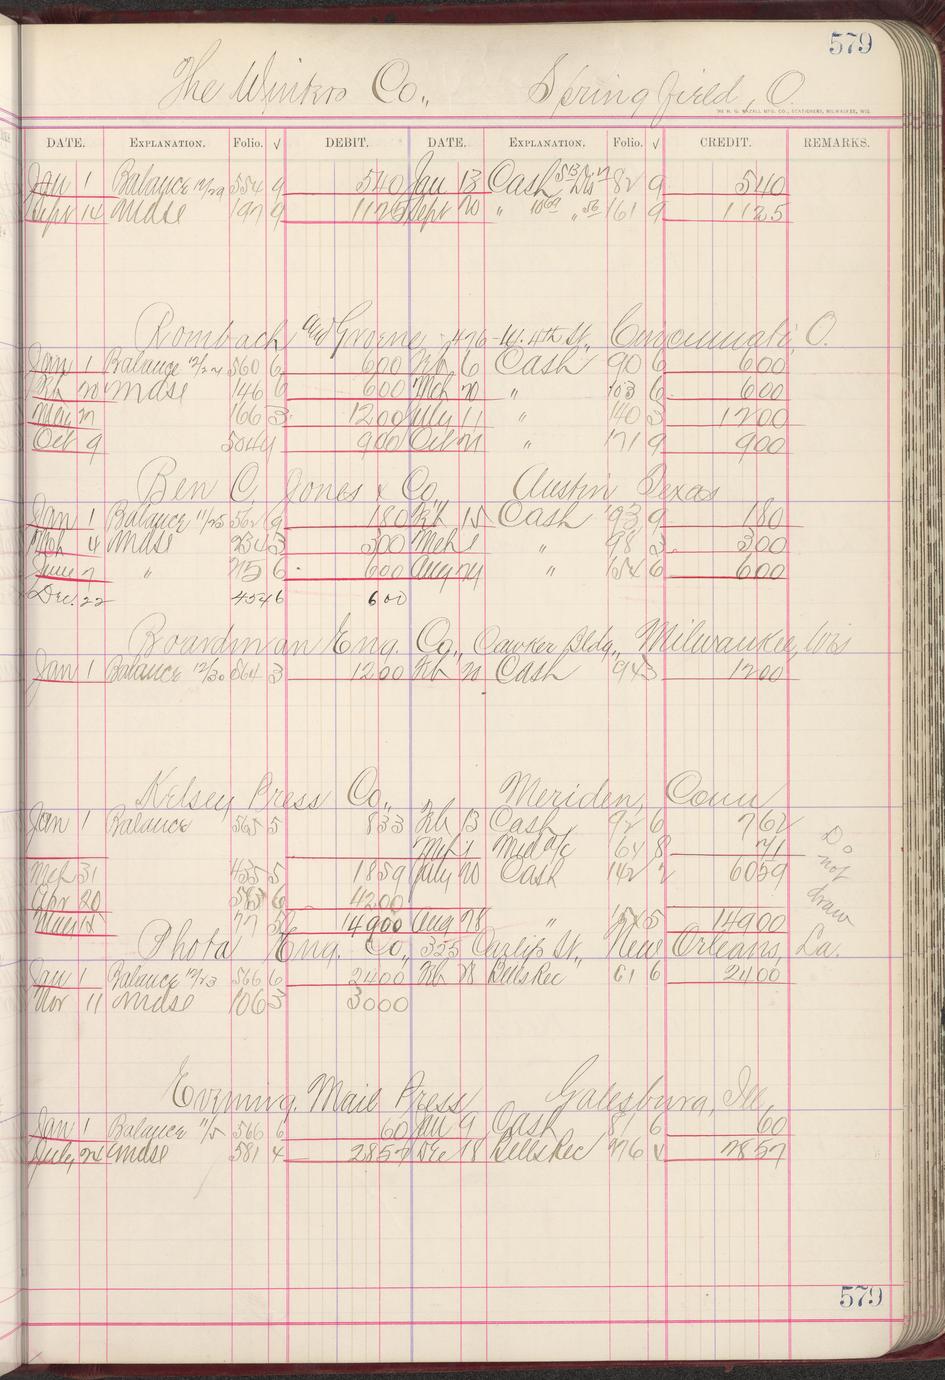 579
The Winters Co., Springfield, O.
THE H. G. RAZALL MFG. CO., STATIONERS, MILWAUKEE, WIS.
DATE. EXPLANATION. Folio. √ DEBIT. DATE. EXPLANATION. Folio. √ CREDIT. REMARKS.
Jan 1 Balance 12/29 554 9 540 Jan 13 Cash Dis 82 9 540
Sept 14 Mdse 197 9 1125 Sept 20 " 1069 " 56 161 9 1125
Rombach and Groene - 426 - W. 4th St., Cincinnati, O.
Jan 1 Balance 12/24 560 6 600 Feb 6 Cash 90 6 600
Feb 20 Mdse 146 6 600 Mch 20 " 103 6 600
May 27 166 3 1200 July 11 " 140 3 1200
Oct 9 504 9 900 Oct 21 " 171 9 900
Ben C. Jones & Co Austin Texas
Jan 1 Balance 11/25 562 9 180 Feb 15 Cash 93 9 180
Feb 4 Mdse 234 3 300 Mch 1 " 98 3 300
June 7 " 215 6 600 Aug 24 " 154 6 600
Dec. 22 454 6 600
Boardman Eng. Co., Cawker Bldg., Milwaukee, Wis
Jan 1 Balance 12/30 564 3 1200 Feb 20 Cash 94 3 1200
Kelsey Press Co., Meriden, Conn
Jan 1 Balance 565 5 833 Feb 13 Cash 92 6 762
Mch 1 Mdse 64 8 71
Mch 31 455 5 1859 July 20 Cash 142 2 6059
Apr 20 6 4200
May 12 77 5 14900 Aug 28 " 5 14900
Do not draw
Photo Eng. Co., 325 St., New Orleans, La.
Jan 1 Balance 12/23 566 6 2400 Feb 28 Bills Rec 61 6 2400
Nov 11 Mdse 106 3 3000
Evening Mail Press Galesburg, Ill
Jan 1 Balance 11/5 566 6 60 Jan 9 Cash 81 6 60
July 24 Mdse 581 4 2857 Dec 18 Bills Rec 276 √ 2857
579